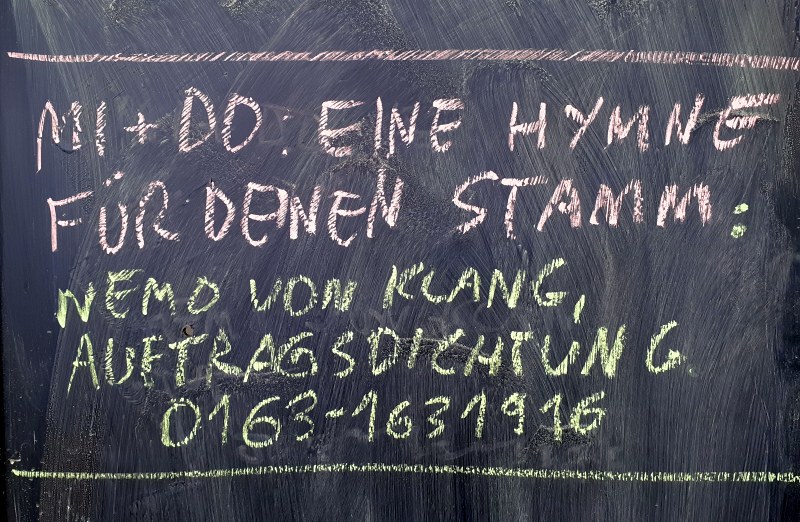 MI + DO: EINE HYMNE
FÜR DEINEN STAMM:
NEMO VON KLANG,
AUFTRAGSDICHTUNG
0163-1631916